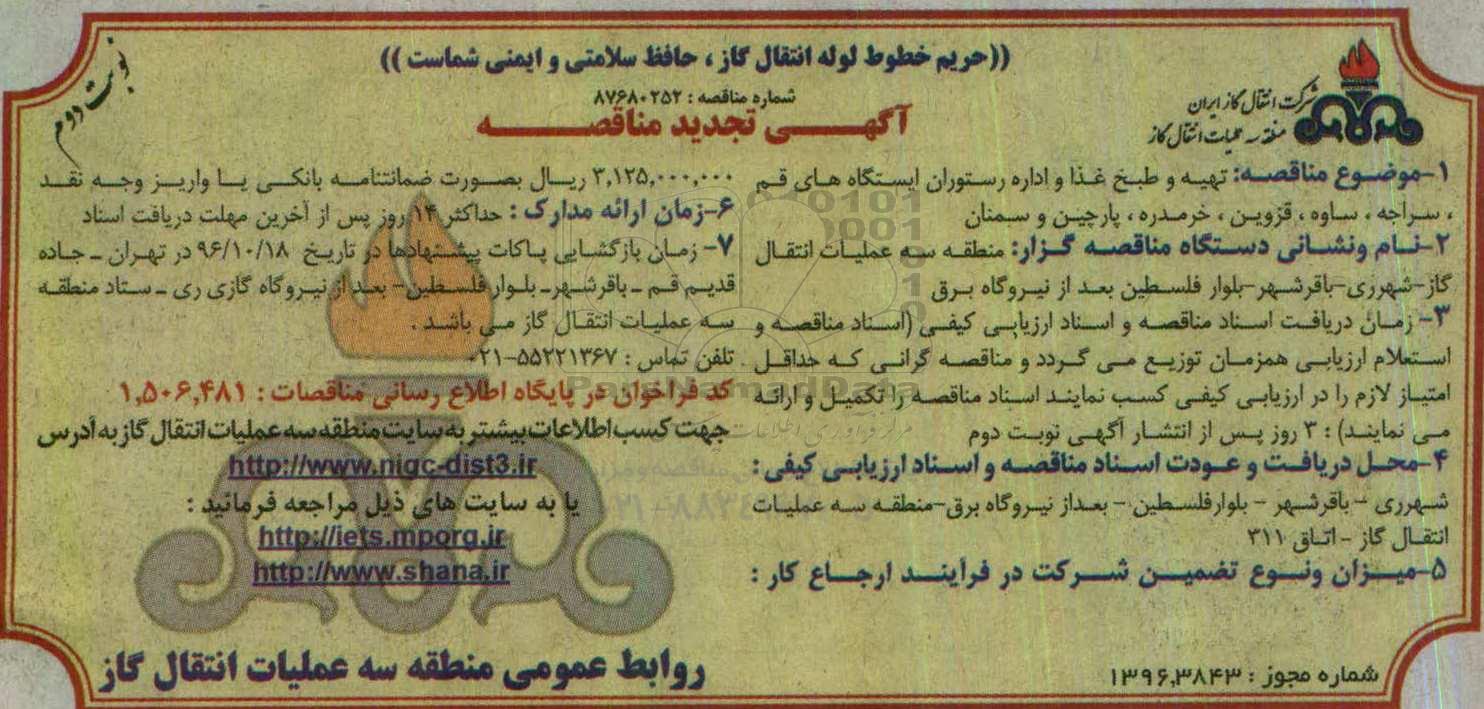 ((حریم خطوط لوله انتقال گاز ، حافظ سلامتی و ایمنی شماست ))
نوبت دوم
شرکت انتقال گاز ایران
منطقه سه عملیات انتقال گاز
شماره مناقصه : ۸۷۶۸۰۲۵۲
آگهی تجدید مناقصه
۱-موضوع مناقصه: تهیه و طبخ غذا و اداره رستوران ایستگاه های قم
، سراجه ، ساوه ، قزوین ، خرمدره ، پارچین و سمنان
۲-نام ونشانی دستگاه مناقصه گزار: منطقه سه عملیات انتقال
گاز-شهرری-باقرشهر-بلوار فلسطین بعد از نیروگاه برق
۳- زمان دریافت اسناد مناقصه و اسناد ارزیابی کیفی (اسناد مناقصه و
استعلام ارزیابی همزمان توزیع می گردد و مناقصه گرانی که حداقل
امتیاز لازم را در ارزیابی کیفی کسب نمایند اسناد مناقصه را تکمیل و ارائه
می نمایند) : ۳ روز پس از انتشار آگهی نوبت دوم
۴-محل دریافت و عودت اسناد مناقصه و اسناد ارزیابی کیفی :
شهرری - باقرشهر - بلوارفلسطین - بعداز نیروگاه برق-منطقه سه عملیات
انتقال گاز - اتاق ۳۱۱
۵-میزان ونوع تضمین شرکت در فرآیند ارجاع کار :
۳,۱۲۵,۰۰۰,۰۰۰ ریال بصورت ضمانتنامه بانکی یا واریز وجه نقد
۶-زمان ارائه مدارک : حداکثر ۱۴ روز پس از آخرین مهلت دریافت اسناد
۷- زمان بازگشایی پاکات پیشنهادها در تاریخ ۹۶/۱۰/۱۸ در تهران - جاده
قدیم قم - باقرشهر- بلوار فلسطین- بعد از نیروگاه گازی ری - ستاد منطقه
سه عملیات انتقال گاز می باشد .
تلفن تماس : ۵۵۲۲۱۳۶۷-۰۲۱
کد فراخوان در پایگاه اطلاع رسانی مناقصات : ۱,۵۰۶,۴۸۱
جهت کسب اطلاعات بیشتر به سایت منطقه سه عملیات انتقال گاز به آدرس
http://www.nigc-dist3.ir
یا به سایت های ذیل مراجعه فرمائید :
http://iets.mporg.ir
http://www.shana.ir
روابط عمومی منطقه سه عملیات انتقال گاز
شماره مجوز : ۱۳۹۶,۳۸۴۳
ParsNamadData